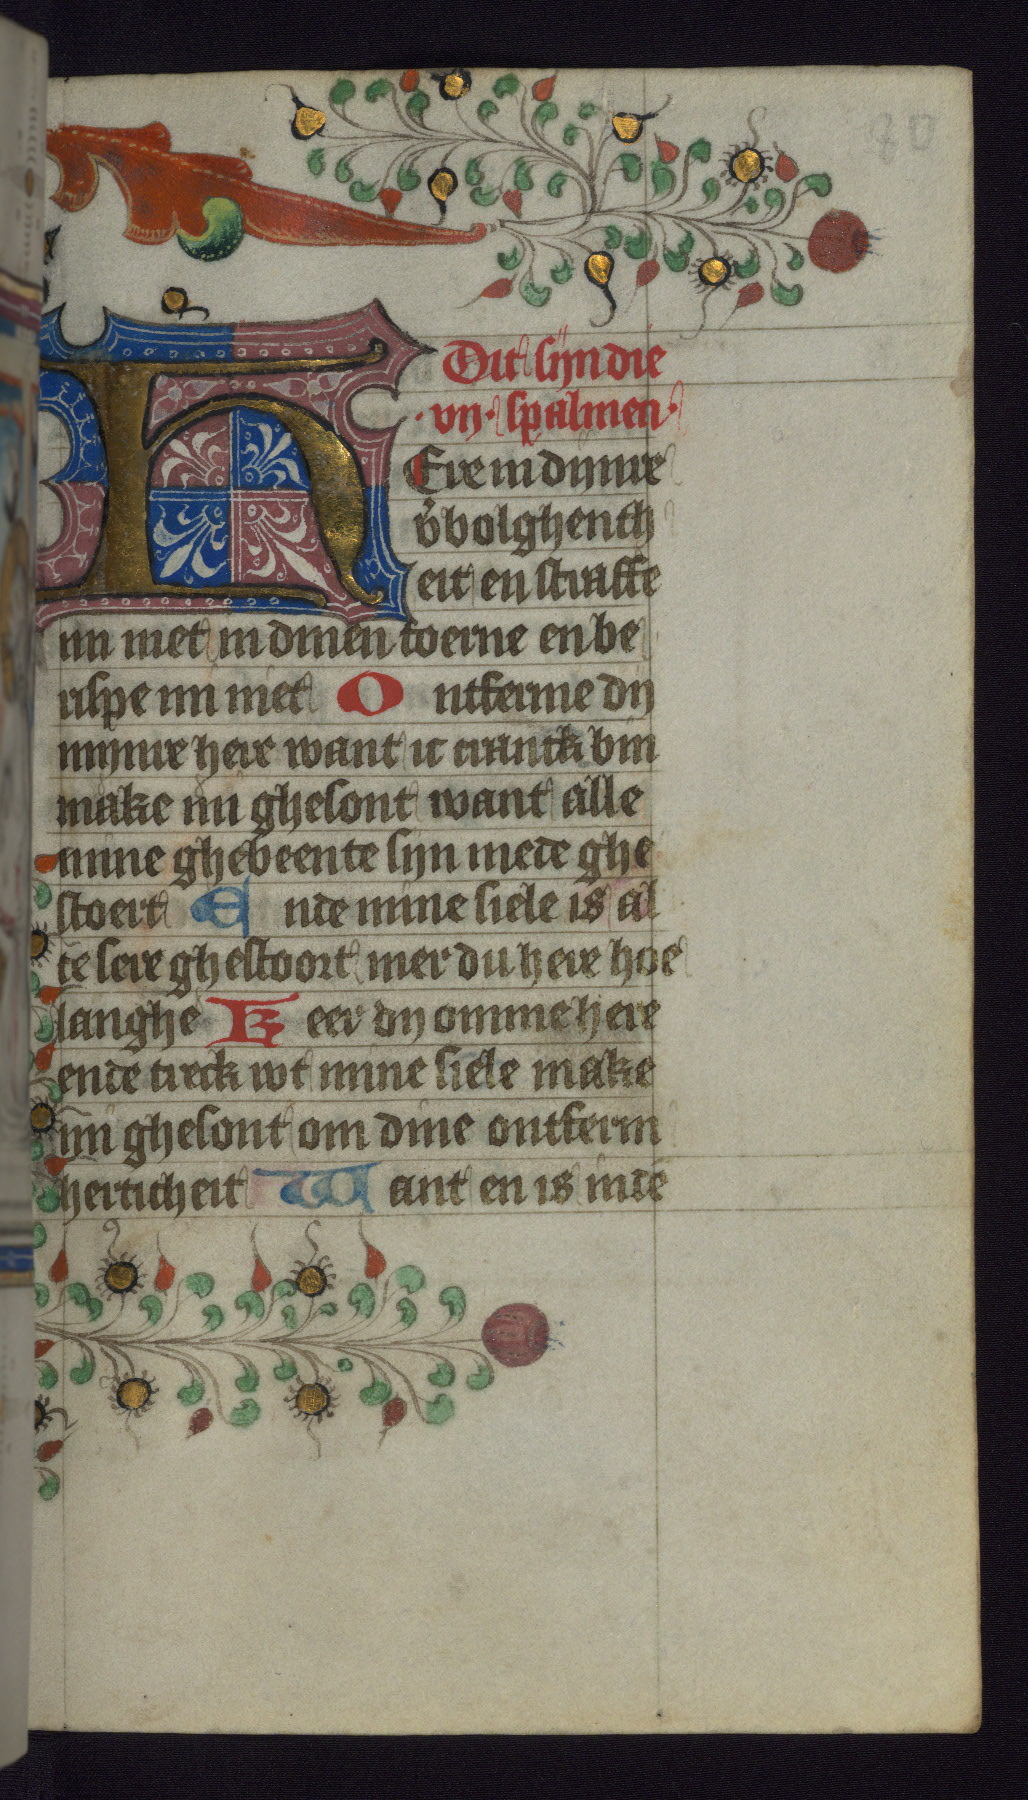 80
Dit sijn die
·vij· spalmen·
HEre in dijnre
v̉bolghenth
eit en straffe
mi niet in dinen toerne en be
rispe mi niet Ontferme dij
mijnre here want ic cranck bin
make mi ghesont want alle
mine ghebeente sijn mede ghe
stoert Ende mine siele is al
te sere ghestoort mer du here hoe
langhe Keer dij omme here
ende treck wt mine siele make
mi ghesont om dine ontferm
herticheit Want en is inde